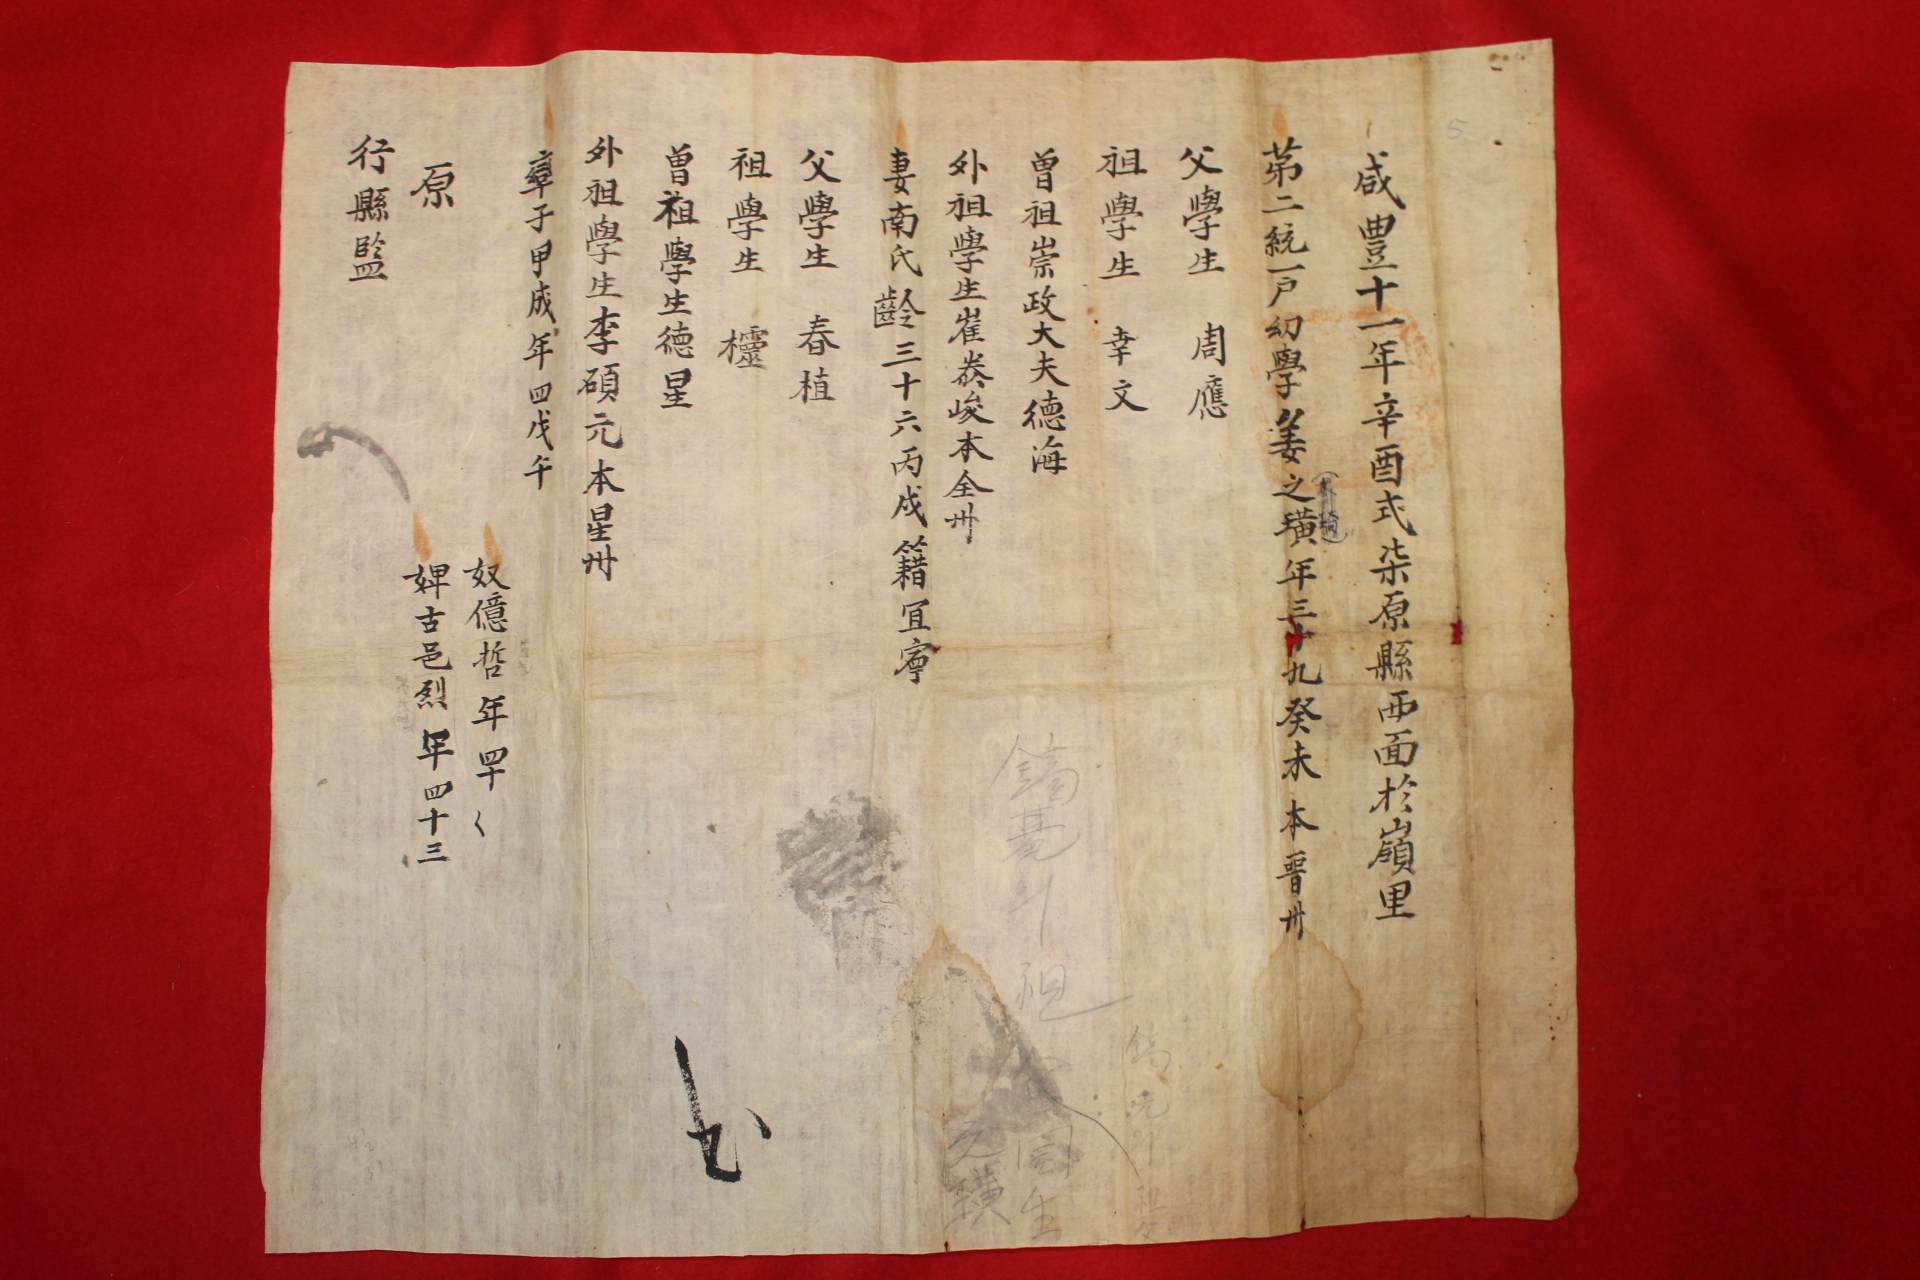 咸豊十一年辛酉式柒原縣西面於嶺里
苐二統一戶幼學姜之璜年三十九癸未本晋州
父學生 周應
祖學生 幸文
曾祖崇政大夫德海
外祖學生崔峻本全州
妻南氏齡三十六丙戌籍冝寧
父學生 春植
祖學生 欞
曾祖學生德星
外祖學生李碩元本星州
率子甲成年四戊午
奴億哲年四十
婢古邑烈年四十三
原
行縣監